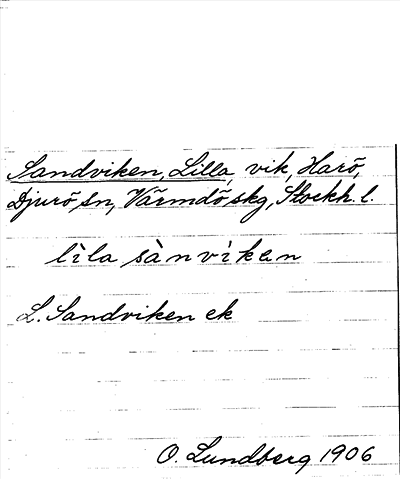 Sandviken, Lilla, vik, Harö,
Djurö sn, Värmdö skg, Stockh. l.
lìla sànvikɘn
L. Sandviken ek
O. Lundberg 1906